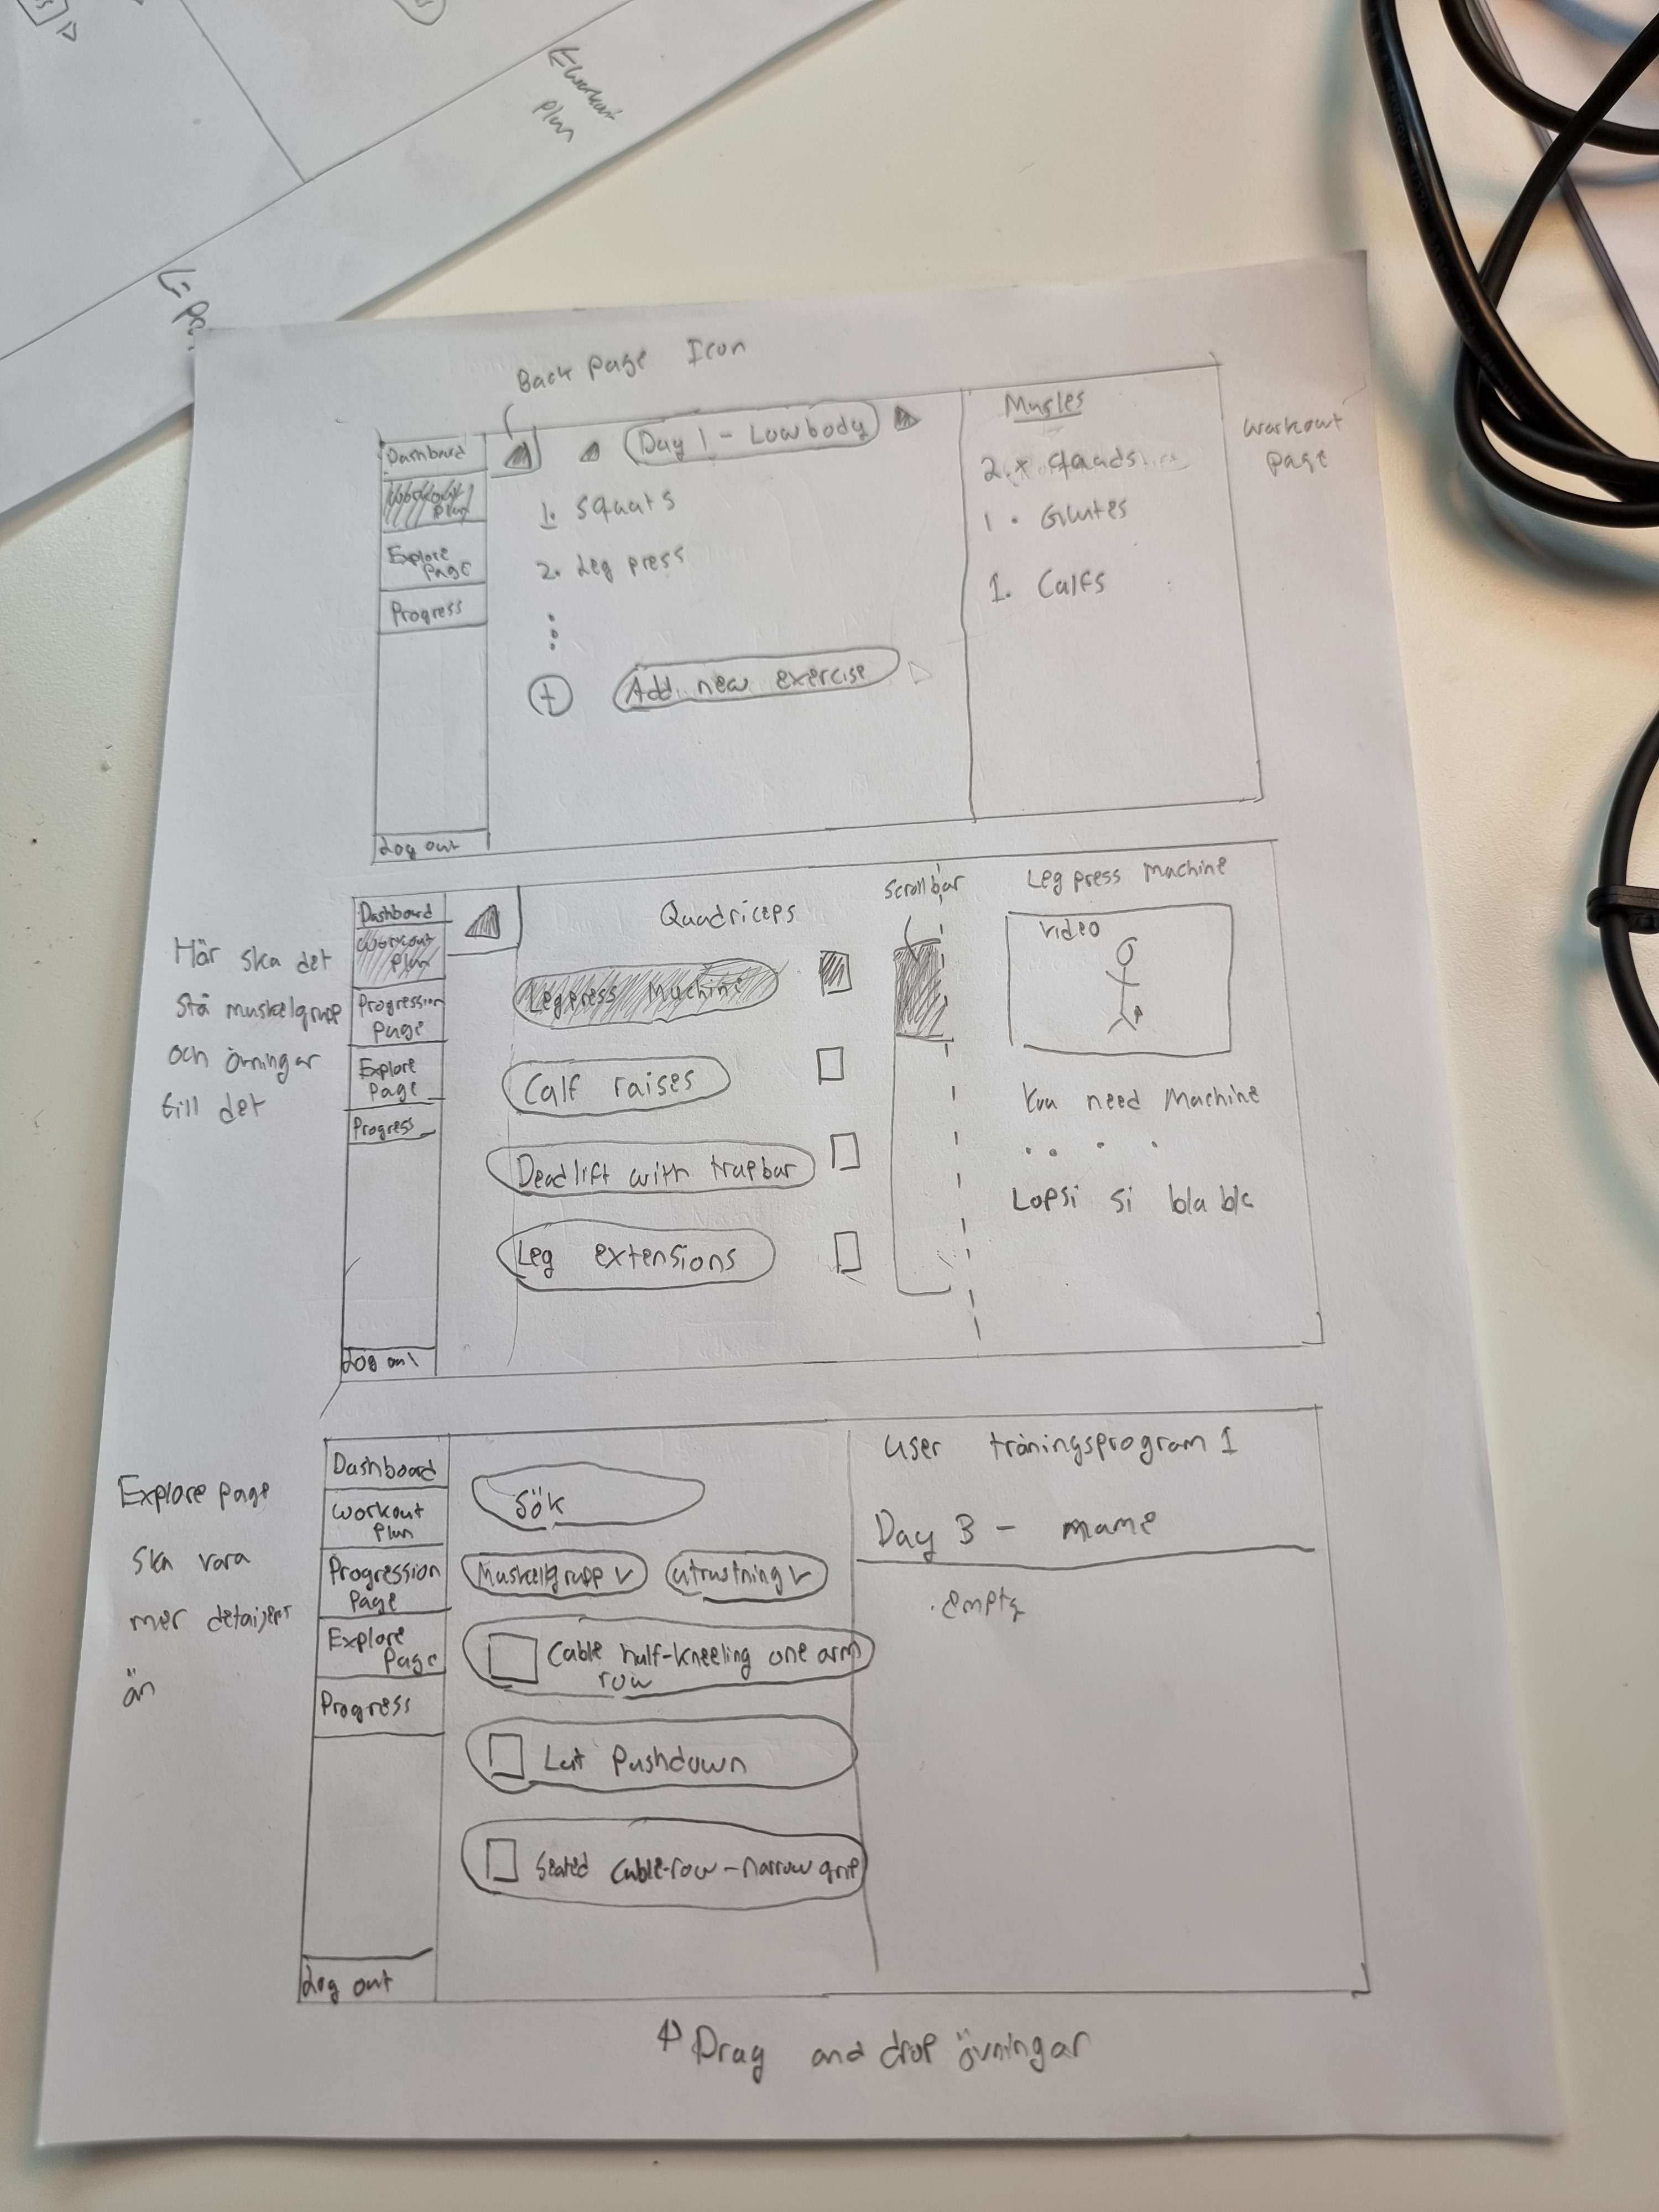 workout
plan
Back page Icon
Dashboard
Workout
Plan
Explore
Page
Progress
Log out
Day 1 - Lowbody
1. Squats
2. Leg press
+
Add new exercise
Musles
2. x Quads
1 . Glutes
1. Calfs
workout
page
Här ska det
stå muskelgrupp
och övningar
till det
Dashboard
Workout
Plan
Progression
Page
Explore
Page
Progress
Log out
Quadriceps
Legpress Machine
Calf raises
Deadlift with trapbar
Leg extensions
Scrollbar
Leg press Machine
Video
You need Machine
. . . .
Lopsi si bla bla
Explore page
ska vara
mer
än
Dashboard
Workout
Plan
Progression
Page
Explore
Page
Progress
Log out
Sök
Muskelgrupp v
utrustning v
Cable half-kneeling one arm
row
Lat Pushdown
Seated Cable-row-narrow grip
User träningsprogram 1
Day 3 - name
. empty
Drag and drop övningar